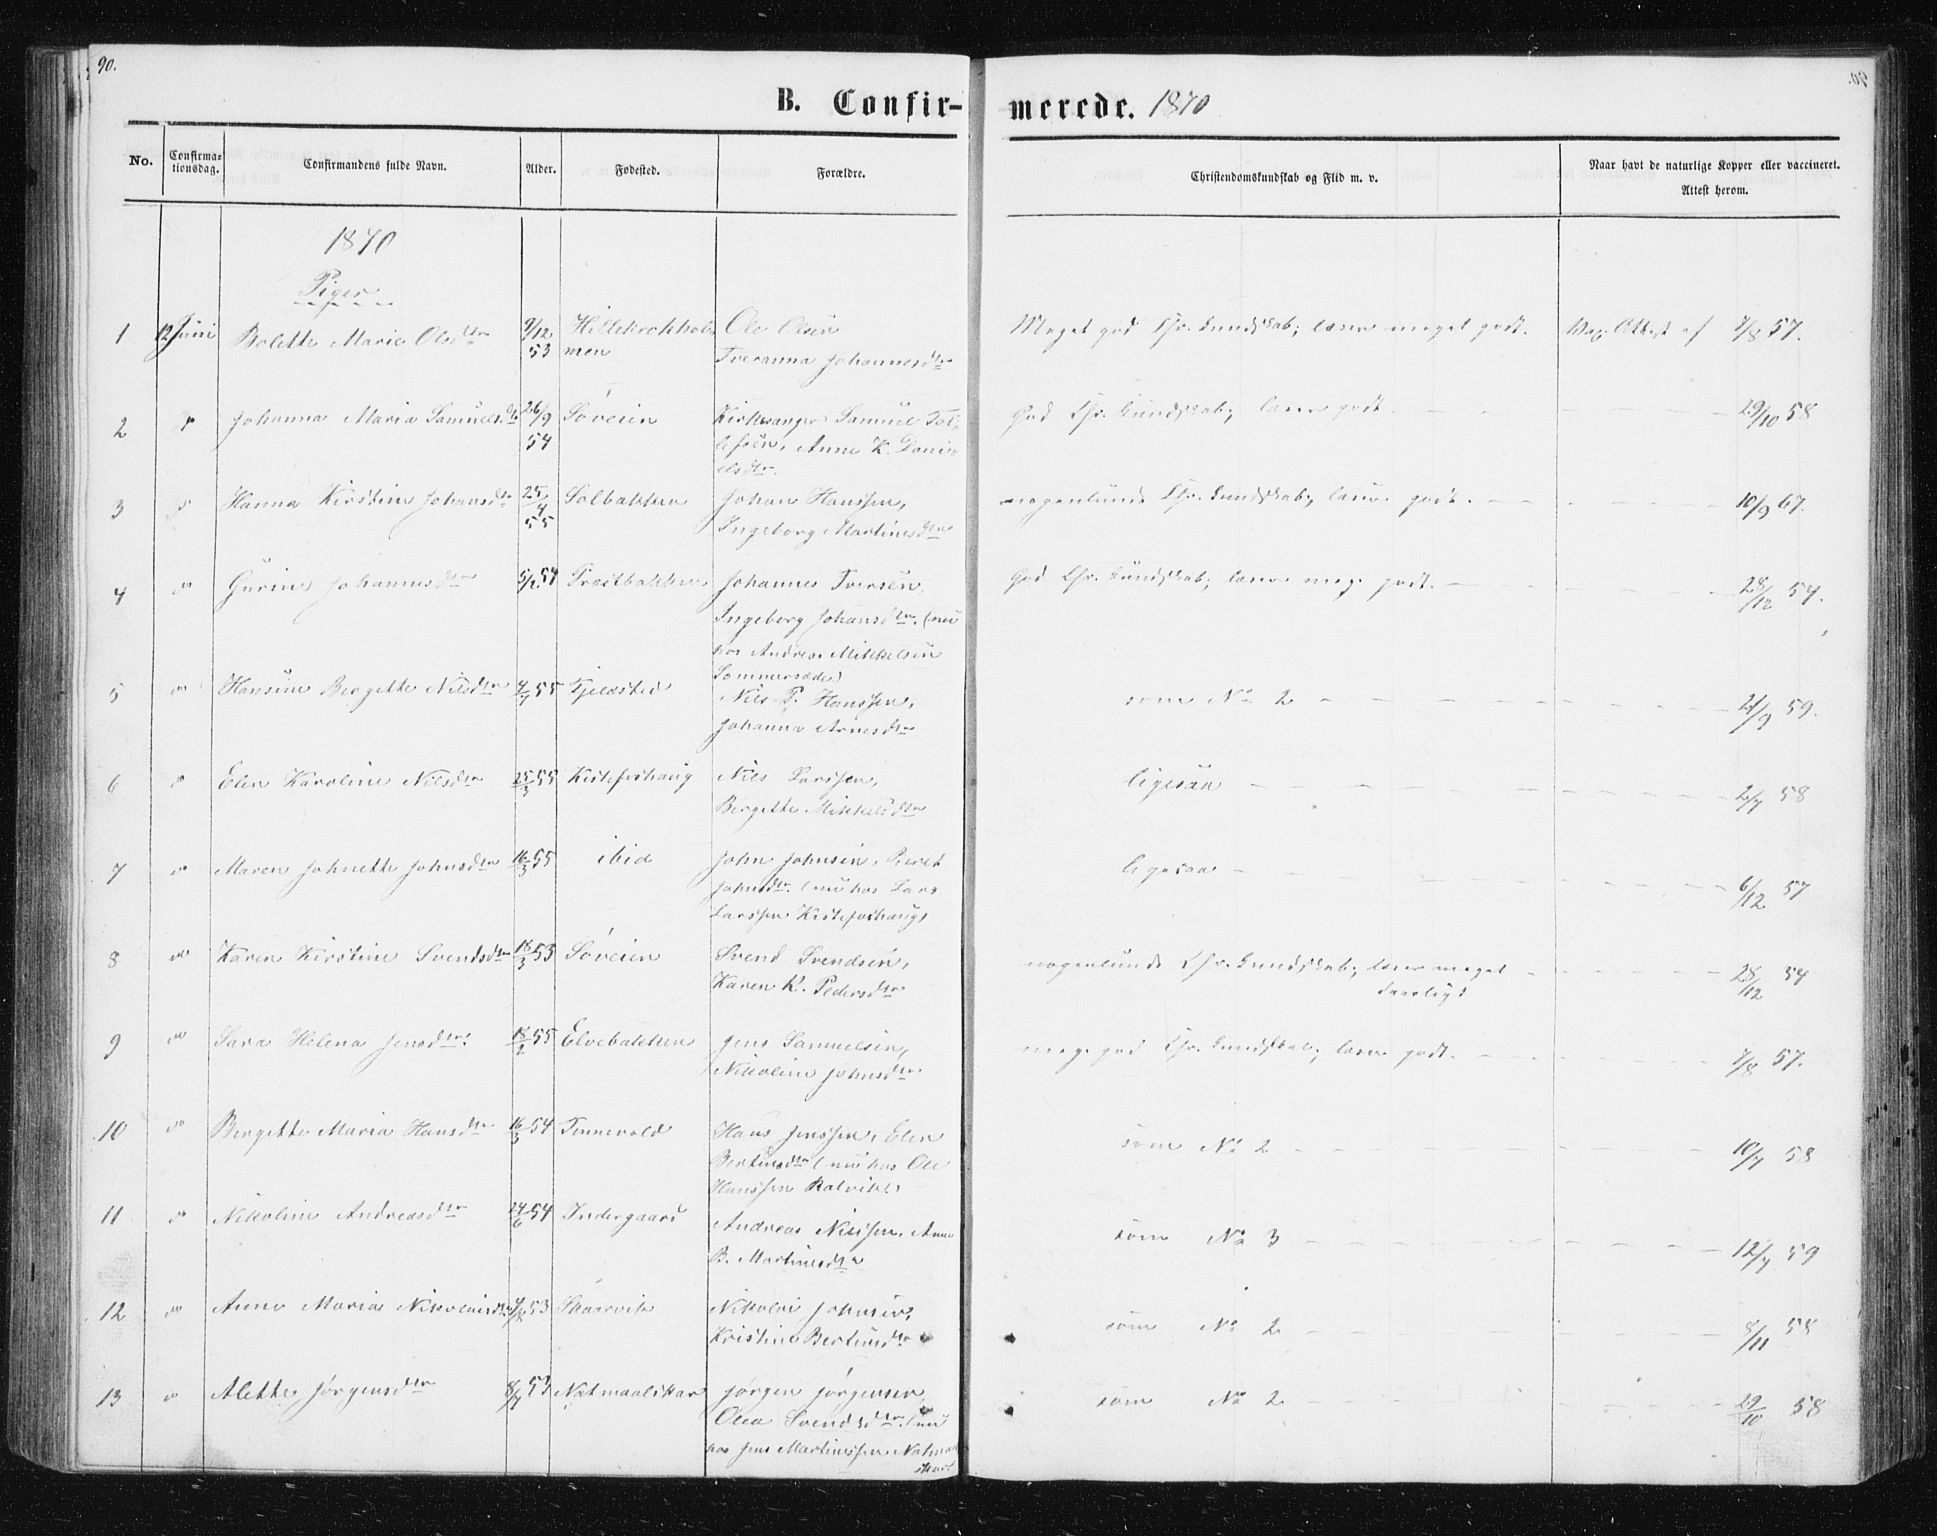 90.
B. Confir-
merede. 1870
No.
Confirma-
tionsdag.
Confirmandens fulde Navn.
Alder.
Fødested.
Forældre.
Christendomskundskab og Flid m. v.
Naar havt de naturlige Kopper eller vaccineret.
Attest herom.
1870
Piger
1 12 Juni Bolette Marie Olsdtr 9/12 53
men Ole Olsen
Johannesdtr
Meget god Chr. kundskab; læser meget godt. Vax. Attest af 7/8 57.
2 Johanna Maria Samuelsdtr 26/9 54 Søveien Kirkesanger Samuel Tol-
lefsen, Anne K. Dani-
elsdtr.
God Chr. kundskab; læser godt. 29/10 58
3 Hanna Kirstine Johansdtr 25/4 55 Solbakken Johan Hanssen,
Ingeborg Martinesdtr
nogenlunde Chr. kundskab; læser godt. 10/9 67.
4 Gurine Johannesdtr 54 Præstbakken Johannes Iversen,
Ingeborg Johansdtr. (nu
hos Andreas Mikkelsen
Sommersæde)
God Chr. kundskab; læser meg. godt. 28/12 54.
5 Hansine Bergette Nilsdtr 4/7 55 Fjeldsted Nils P. Hanssen,
Johanna Arnesdtr
som No 2 21/9 59.
6 Elen Karoline Nilsdtr 25/3 55 Kistefoshaug Nils Larssen,
Birgitte Mikkelsdtr
ligesaa 2/7 58
7 Maren Johnette Johnsdtr 16/3 55 ibid John Johnsen, Beret
Johnsdtr. (nu hos Lars
Larssen Kistefoshaug)
ligesaa 6/12 57
8 Karen Kirstine Svendsdtr 18/3 53 Søveien Svend Svendsen,
Karen K. Pedersdtr
nogenlunde Chr. kundskab; læser meget
daarligt 28/12 54
9 Sara Helena Jensdtr. 18/2 55 Elvebakken Jens Samuelsen,
Nikoline Johnsdtr
meg. god Chr. kundskab; læser godt. 7/8 57.
10 Bergitte Maria Hansdtr 16/3 54 Tennevold Hans Jenssen, Elen
Bertinesdtr (nu hos Ole
Hanssen Ratvik)
som No 2 10/7 58
11 Nikoline Andreasdtr 24/6 54 Indergaard Andreas Nilssen, Anne
B. Martinesdtr
som No 3 12/7 59
12 Anne Maria Nikolaisdtr 53 Skaarvik Nikolai Johnsen,
Kristine Bertinesdtr
som No 2 8/11 58
13 Alette Jørgensdtr 8/7 53 Natmaalskar Jørgen Jørgensen
Olea Svendsdtr. (nu
hos Jens Martinussen Natmaal
skar)
som No 2 29/10 58